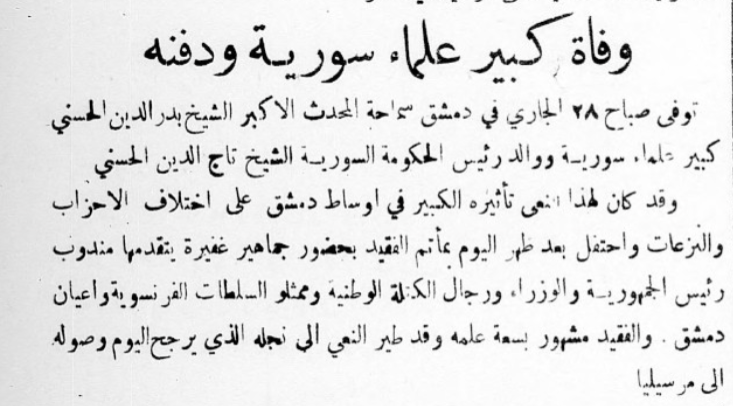 وفاة كبير علماء سورية ودفنه
توفى صباح ٢٨ الجاري في دمشق سماحة المحدث الاكبر الشيخ بدر الدين الحسني
كبير علماء سورية ووالد رئيس الحكومة السورية الشيخ تاج الدين الحسني
وقد كان لهذا النعى تأثيره الكبير في اوساط دمشق على اختلاف الاحزاب
والنزعات واحتفل بعد ظهر اليوم بمأتم الفقيد بحضور جماهير غفيرة يتقدمها مندوب
رئيس الجمهورية والوزراء ورجال الكتلة الوطنية وممثلو السلطات الفرنسوية واعيان
دمشق . والفقيد مشهور بسعة علمه وقد طير النعي الى نجله الذي يرجح اليوم وصوله
الى مرسيليا